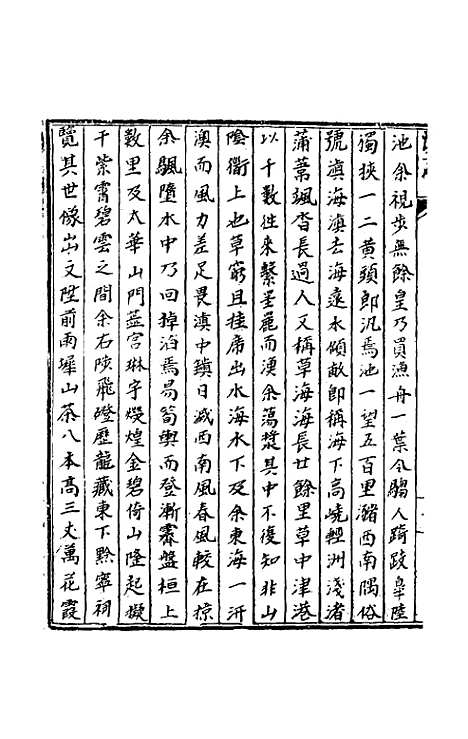 池余視步無餘皇乃買漁舟一葉令騶人踦跂皐陸
獨挾一二黃頭郎汎焉池一望五百里瀦西南隅俗
號滇海滇去海遠水傾敵即稱海下高嶢輕洲淺渚
蒲葦颯沓長過人又稱草海海長廿餘里草中津港
以千數往來繫罣罹而湧余蕩漿其中不復知非山
陰衢上也草窮且挂席出水海水下及余東海一汧
澳而風力差足畏滇中鎮日滅西南風春風較在掠
余颿墮水中乃回掉泊焉易筍輿而登漸霽盤桓上
數里及太華山門蓝宮琳宇熳煌金碧倚山隆起擬
千紫霄碧雲之間余右陟飛磴歷龍藏東下黔寧祠
覽其世像出文陛前雨墀山茶八本高三丈萬花霞